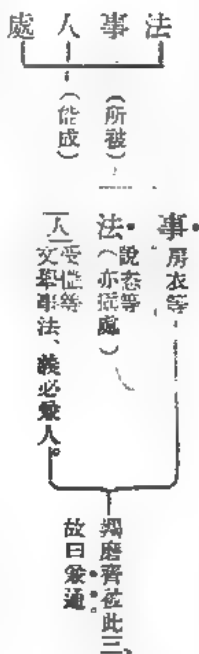 法事人處
(所被)
(能成)
事 房衣等
法 說恣等
(亦處)
人 受懺等
文舉事法、義必兼人。
羯磨齊被此三、
故曰兼通。